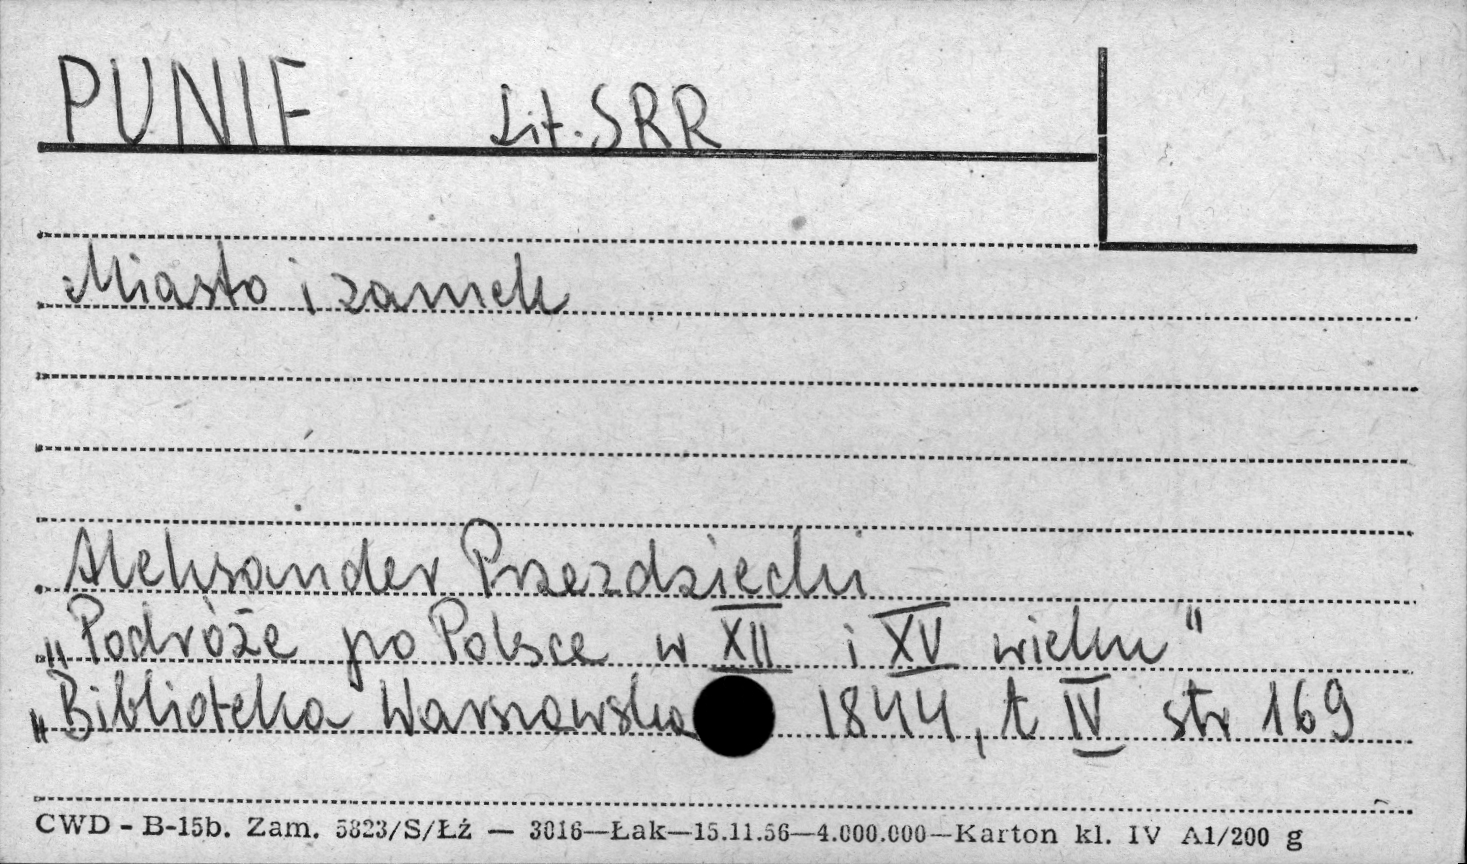 PUNIE Lit. SRR
Miasto i zamek
Aleksander Przezdziecki
„Podróże po Polsce w XII i XV wieku"
„Biblioteka Warszawska 1844, t IV str 169
CWD - B-15b. Zam. 5823/S/Łź — 3016—Łak—15.11.56—4.000.000—Karton kl. IV A1/200 g